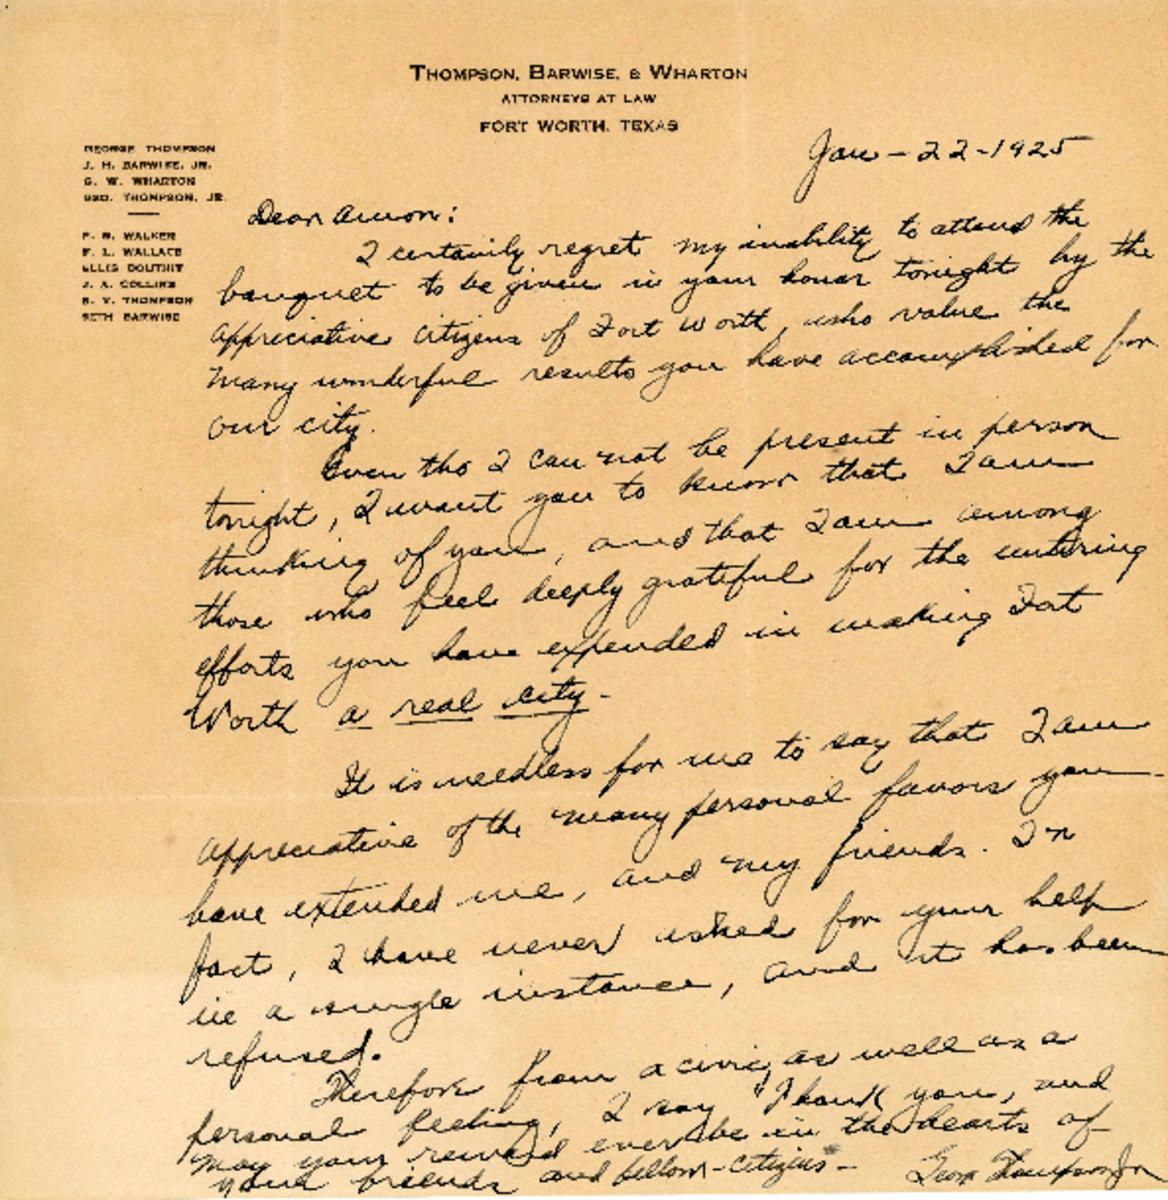 THOMPSON, BARWISE, & WHARTON
ATTORNEYS AT LAW
FORT WORTH, TEXAS
GEORGE THOMPSON
J. H. BARWISE, JR.
G. W. WHARTON
GEO. THOMPSON, JR.
F. B. WALKER
F. L. WALLACE
ELLIS DOUTHIT
J. A. COLLINS
B. V. THOMPSON
SETH BARWISE
Jan - 22 - 1925
Dear Amon:
I certainly regret my inability to attend the
banquet to be given in your honor tonight by the
appreciative citizens of Fort Worth, who value the
many wonderful results you have accomplished for
our city.
Even tho I can not be present in person
tonight, I want you to know that I am
thinking of you, and that I am among
those who feel deeply grateful for the untiring
efforts you have expended in making Fort
Worth a real city -
It is needless for me to say that I am
appreciative of the many personal favors you
have extended me, and my friends. In
fact, I have never asked for your help
in a single instance, and it has been
refused.
Therefore from a civic, as well as a
personal feeling, I say "Thank you, and
may your reward ever be in the hearts of
your friends and fellow-citizens" -
Geo. Thompson Jr